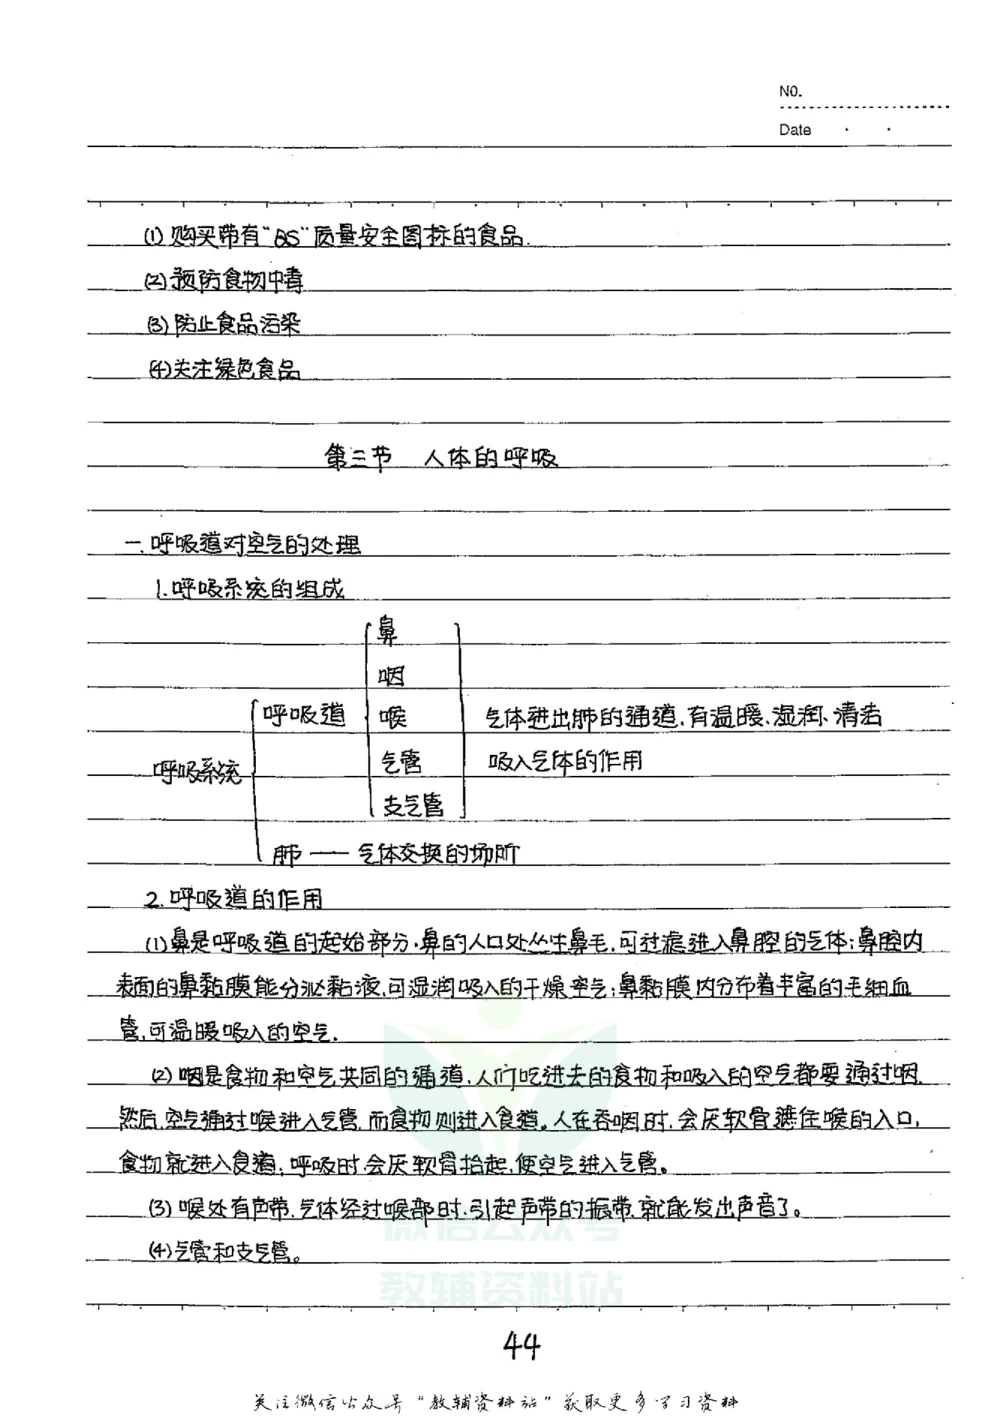 NO.
Date
(1) 购买带有“QS”质量安全图标的食品.
(2) 预防食物中毒
(3) 防止食品污染
(4) 关注绿色食品
第三节 人体的呼吸
一.呼吸道对空气的处理
1.呼吸系统的组成
鼻
咽
呼吸道 喉 气体进出肺的通道,有温暖、湿润、清洁
气管 吸入气体的作用
呼吸系统
支气管
肺 —— 气体交换的场所
2.呼吸道的作用
(1)鼻是呼吸道的起始部分.鼻的入口处丛生鼻毛,可过滤进入鼻腔的气体;鼻腔内
表面的鼻黏膜能分泌黏液,可湿润吸入的干燥空气;鼻黏膜内分布着丰富的毛细血
管,可温暖吸入的空气.
(2)咽是食物和空气共同的通道,人们吃进去的食物和吸入的空气都要通过咽,
然后,空气通过喉进入气管,而食物则进入食道。人在吞咽时,会厌软骨遮住喉的入口,
食物就进入食道;呼吸时会厌软骨抬起,使空气进入气管。
(3)喉处有声带,气体经过喉部时,引起声带的振带,就能发出声音了。
(4)气管和支气管。
微信公众号
教辅资料站
44
关注微信公众号“教辅资料站”获取更多学习资料